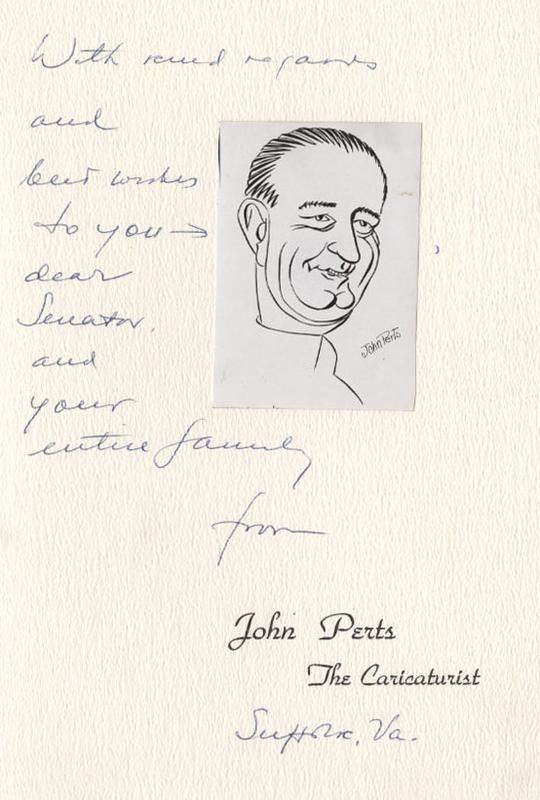 With kind regards
and
best wishes
to you →
dear
Senator,
and
your
entire family
John Perts
from
John Perts
The Caricaturist
Suffolk, Va.